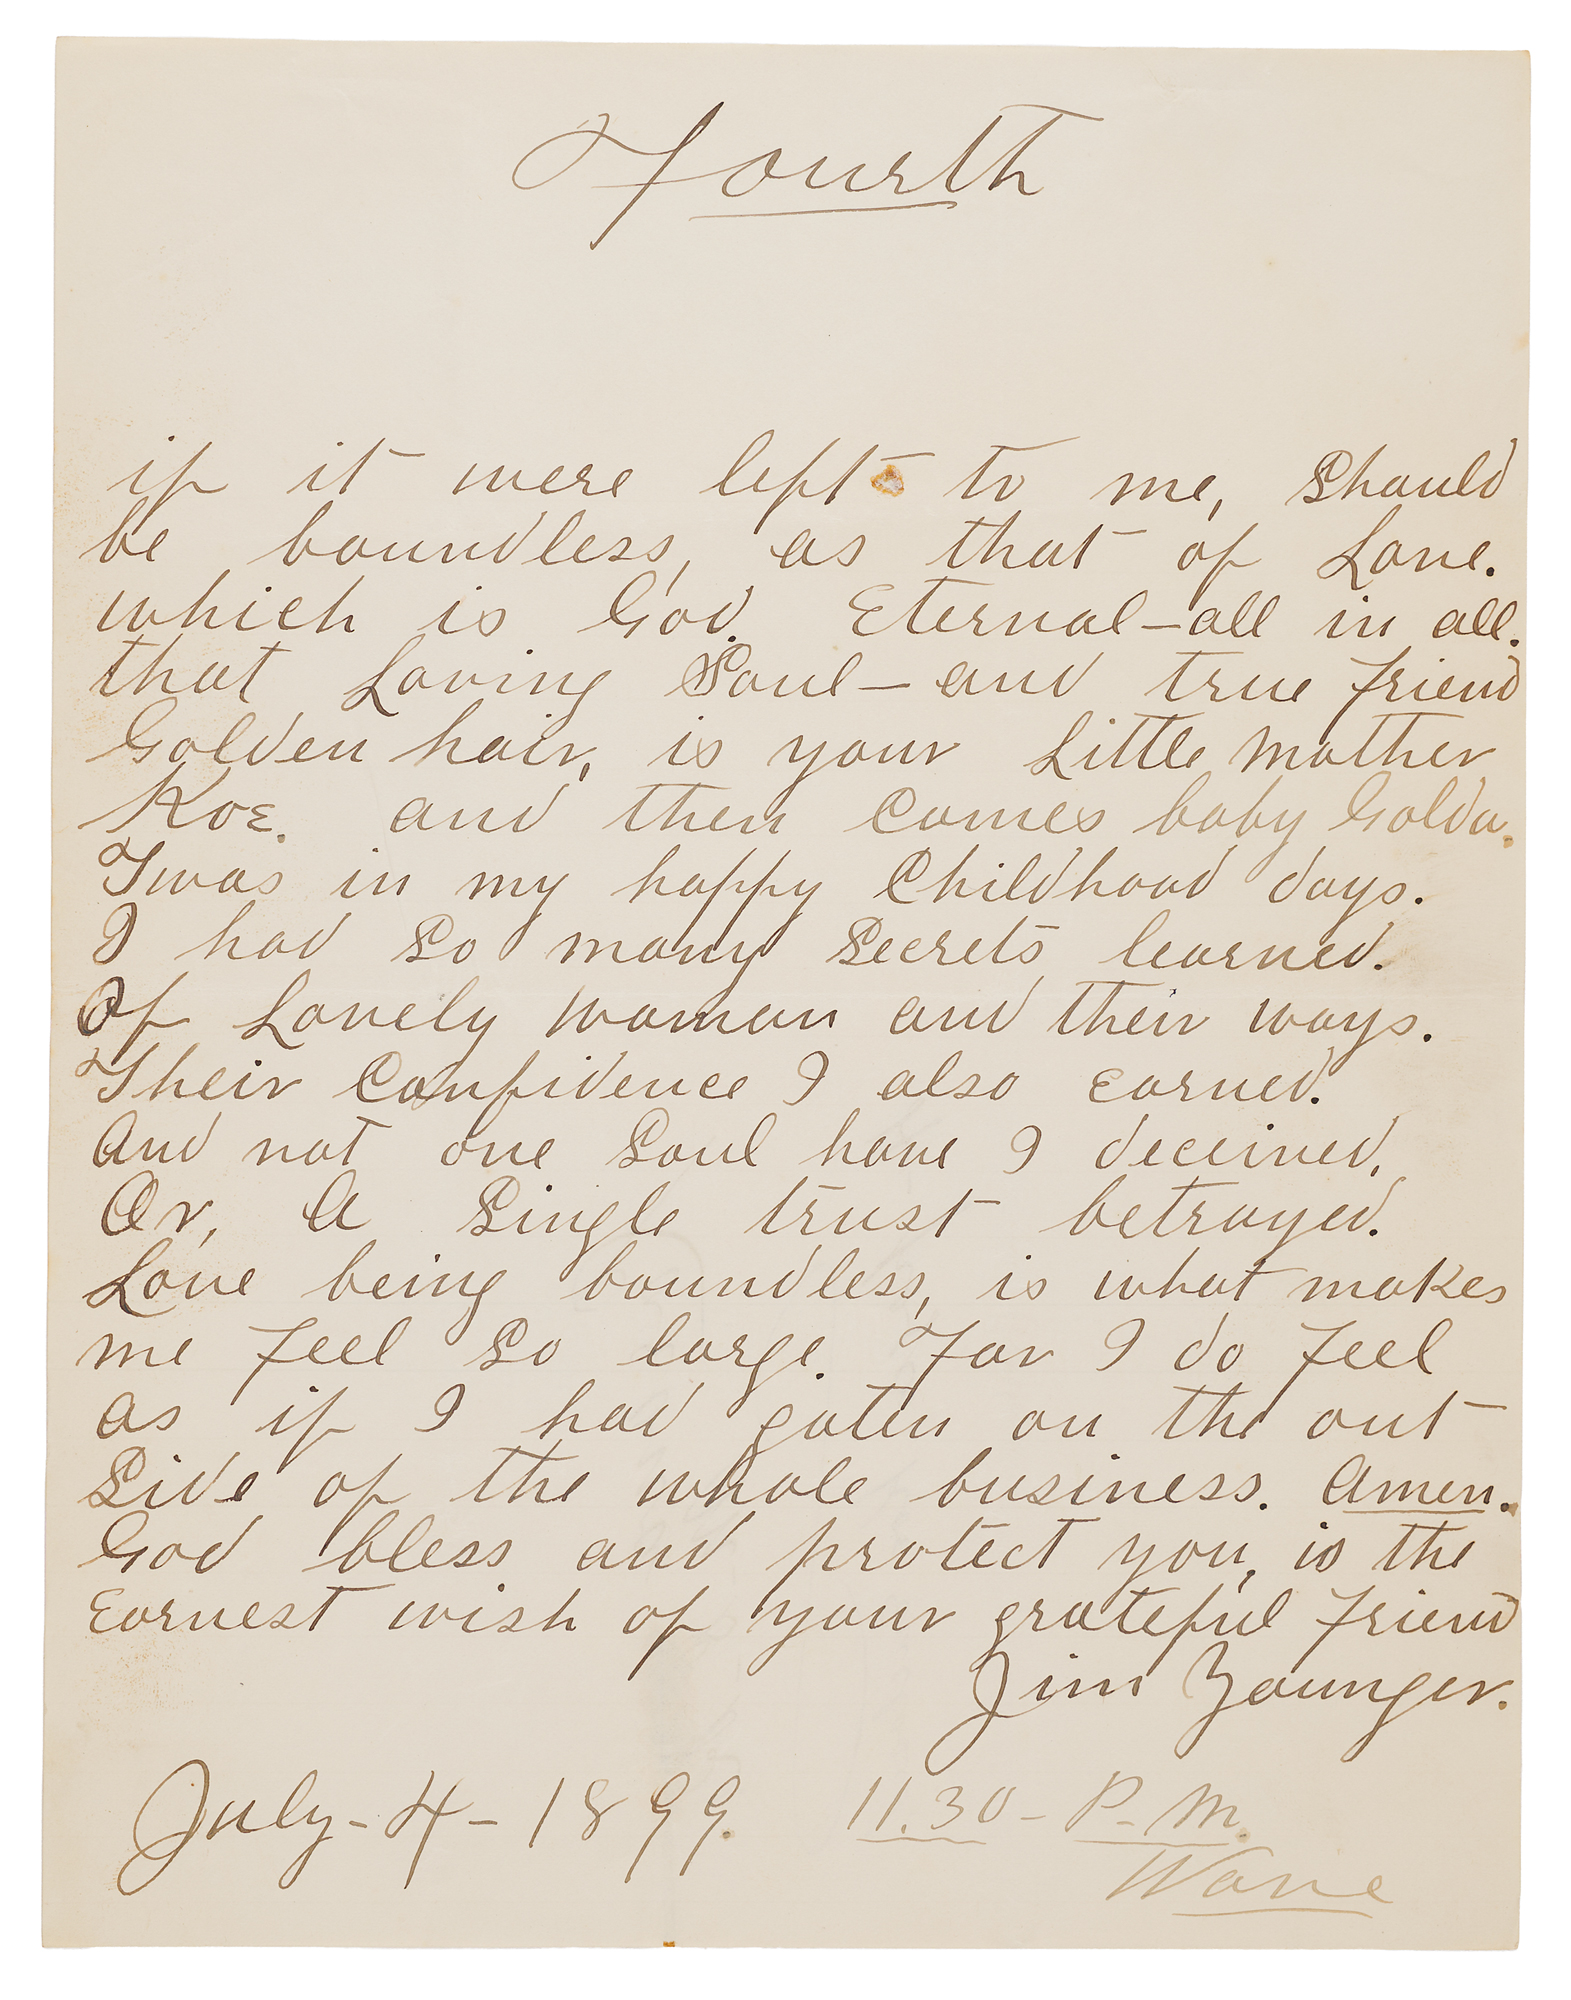 Fourth
if it were left to me, Should
be boundless, as that of Love.
which is God. Eternal—all in all.
that Loving Soul—and true friend
Golden hair, is your Little Mother
Koe. and then Comes baby Golda.
Twas in my happy Childhood days.
I had So many Secrets learned.
Of Lovely woman and their ways.
Their Confidence I also earned.
And not one Soul have I deceived,
Or, A Single trust betrayed.
Love being boundless, is what makes
me feel So large. For I do feel
as if I had goten on the out
Side of the whole business. Amen.
God bless and protect you, is the
Earnest wish of your grateful friend
Jim Younger.
July-4-1899. 11.30-P-M.